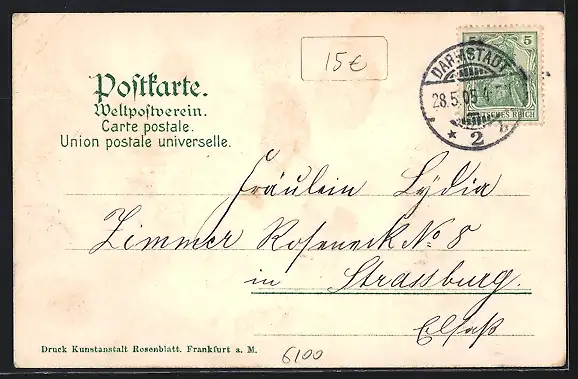 15€
5
DARMSTADT
28.5.05.4-5N
* 2 b
DEUTSCHES REICH
Postkarte.
Weltpostverein.
Carte postale.
Union postale universelle.
Fräulein Lydia
Zimmer Roseneck No 8
in Strassburg.
Elsaß
Druck Kunstanstalt Rosenblatt. Frankfurt a. M.
6100